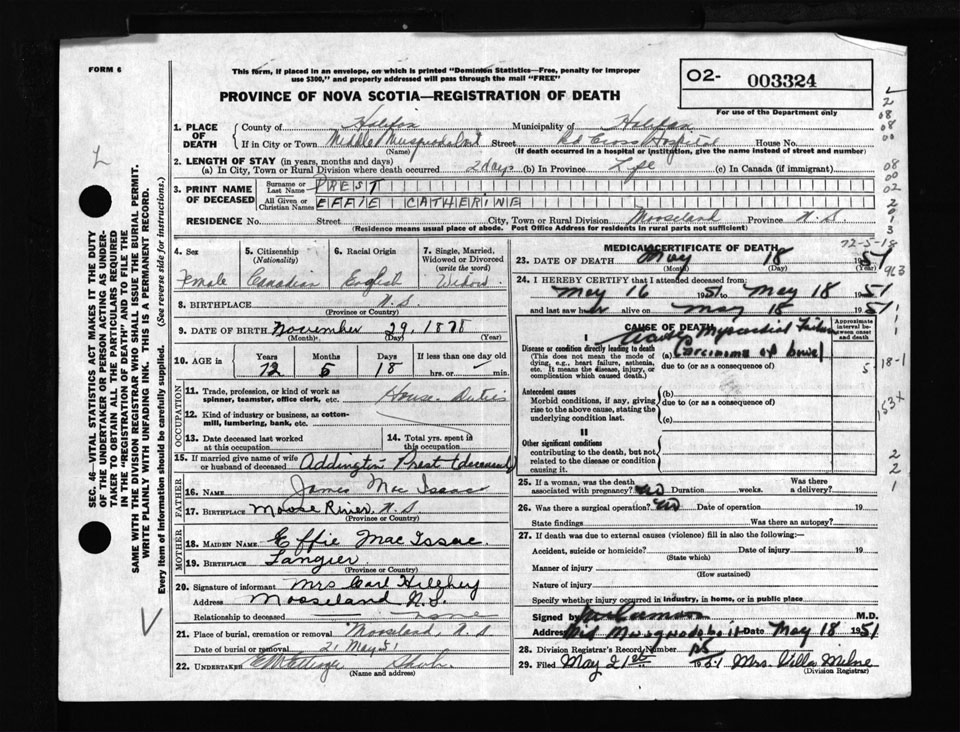 FORM 6
This form, if placed in an envelope, on which is printed "Dominion Statistics—Free, penalty for improper
use $300," and properly addressed will pass through the mail "FREE"
PROVINCE OF NOVA SCOTIA—REGISTRATION OF DEATH
O2- 003324
For use of the Department only
1. PLACE OF DEATH
County of Halifax Municipality of Halifax
If in City or Town Middle Musquodoboit Street Hospital House No.
(Name) (If death occurred in a hospital or institution, give the name instead of street and number)
2. LENGTH OF STAY (in years, months and days)
(a) In City, Town or Rural Division where death occurred 2 days (b) In Province Life (c) In Canada (if immigrant)
3. PRINT NAME OF DECEASED
Surname or Last Name PREST
All Given or Christian Names EFFIE CATHERINE
RESIDENCE No. Street City, Town or Rural Division Mooseland Province N.S.
(Residence means usual place of abode. Post Office Address for residents in rural parts not sufficient)
4. Sex Female
5. Citizenship (Nationality) Canadian
6. Racial Origin English
7. Single, Married, Widowed or Divorced (write the word) Widow
8. BIRTHPLACE N.S.
(Province or Country)
9. DATE OF BIRTH November 29, 1878
(Month) (Day) (Year)
10. AGE in Years 72 Months 5 Days 18 If less than one day old
hrs. or min.
OCCUPATION
11. Trade, profession, or kind of work as
spinner, teamster, office clerk, etc. House Duties
12. Kind of industry or business, as cotton-
mill, lumbering, bank, etc.
13. Date deceased last worked
at this occupation
14. Total yrs. spent in
this occupation
15. If married give name of wife
or husband of deceased Addington Prest (deceased)
FATHER
16. NAME James Mac Isaac
17. BIRTHPLACE Moose River, N.S
(Province or Country)
MOTHER
18. MAIDEN NAME Effie Mac Issac
19. BIRTHPLACE Tangier
(Province or Country)
20. Signature of informant Mrs Carl Hilchey
Address Mooseland N.S.
Relationship to deceased
21. Place of burial, cremation or removal Mooseland, N.S
Date of burial or removal 21 May 51
22. UNDERTAKER
(Name and address)
MEDICAL CERTIFICATE OF DEATH
72-5-18
23. DATE OF DEATH May 18 1951
(Month) (Day) (Year)
24. I HEREBY CERTIFY that I attended deceased from:
May 16 1951 to May 18 1951
and last saw her alive on May 18 1951
CAUSE OF DEATH
Approximate interval between onset and death
I
Disease or condition directly leading to death
(This does not mean the mode of
dying, e.g., heart failure, asthenia,
etc. It means the disease, injury, or
complication which caused death.)
Acute Myocardial Failure
(a) Carcinoma of bowel
due to (or as a consequence of)
Antecedent causes
Morbid conditions, if any, giving
rise to the above cause, stating the
underlying condition last.
(b)
due to (or as a consequence of)
(c)
II
Other significant conditions
contributing to the death, but not
related to the disease or condition
causing it.
25. If a woman, was the death
associated with pregnancy? no Duration weeks. Was there
a delivery?
26. Was there a surgical operation? no Date of operation 19
State findings Was there an autopsy?
27. If death was due to external causes (violence) fill in also the following:—
Accident, suicide or homicide? Date of injury 19
(State which)
Manner of injury
(How sustained)
Nature of injury
Specify whether injury occurred in industry, in home, or in public place
Signed by M.D.
Address Mid Musquodoboit Date May 18 1951
28. Division Registrar's Record Number
29. Filed May 21st 1951 Mrs. Villa Milne
(Division Registrar)
SEC. 46—VITAL STATISTICS ACT MAKES IT THE DUTY
OF THE UNDERTAKER OR PERSON ACTING AS UNDER-
TAKER TO OBTAIN ALL THE PARTICULARS REQUIRED
IN THE "REGISTRATION OF DEATH" AND TO FILE THE
SAME WITH THE DIVISION REGISTRAR WHO SHALL ISSUE THE BURIAL PERMIT.
WRITE PLAINLY WITH UNFADING INK. THIS IS A PERMANENT RECORD.
Every item of Information should be carefully supplied. (See reverse side for instructions.)